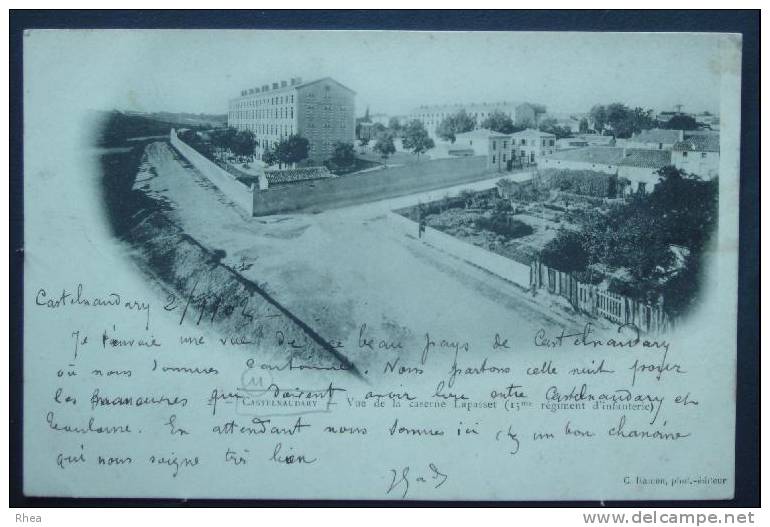 Castelnaudary 2/9/02
Je t'envoie une vue de ce beau pays de Castelnaudary
où nous sommes cantonné. Nous partons cette nuit pour
les manœuvres qui doivent avoir lieu entre Castelnaudary et
CASTELNAUDARY - Vue de la caserne Lapasset (15me régiment d'infanterie)
Toulouse. En attendant nous sommes ici chez un bon chanoine
qui nous soigne très bien
C. Ramon, phot.-éditeur
Rhea
http://www.delcampe.net